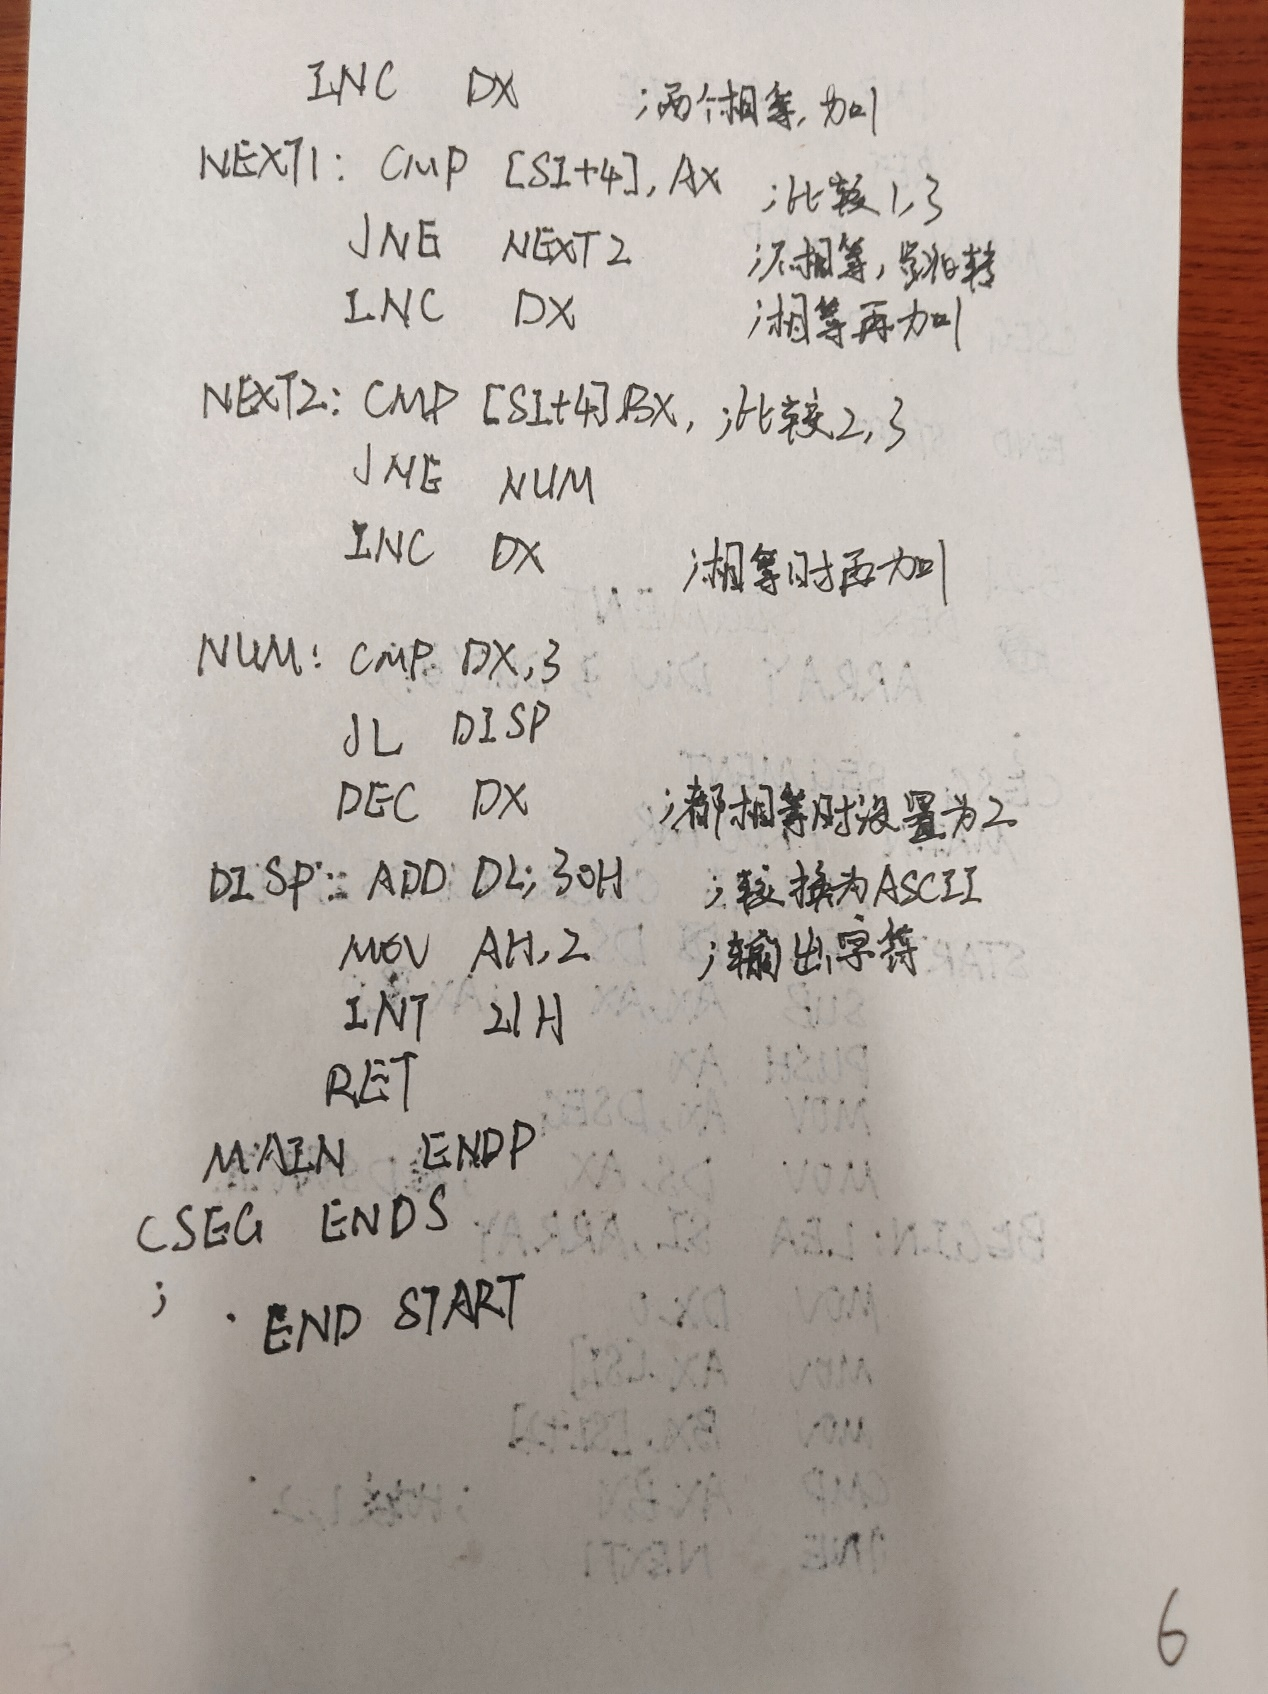 INC DX ;两个相等,加1
NEXT1: CMP [SI+4], AX ;比较1,3
JNE NEXT2 ;不相等,跳转
INC DX ;相等再加1
NEXT2: CMP [SI+4] BX, ;比较2,3
JNE NUM
INC DX ;相等时再加1
NUM: CMP DX,3
JL DISP
DEC DX ;都相等时设置为2
DISP: ADD DL, 30H ;转换为ASCII
MOV AH,2 ;输出字符
INT 21H
RET
MAIN ENDP
CSEG ENDS
;
END START
6